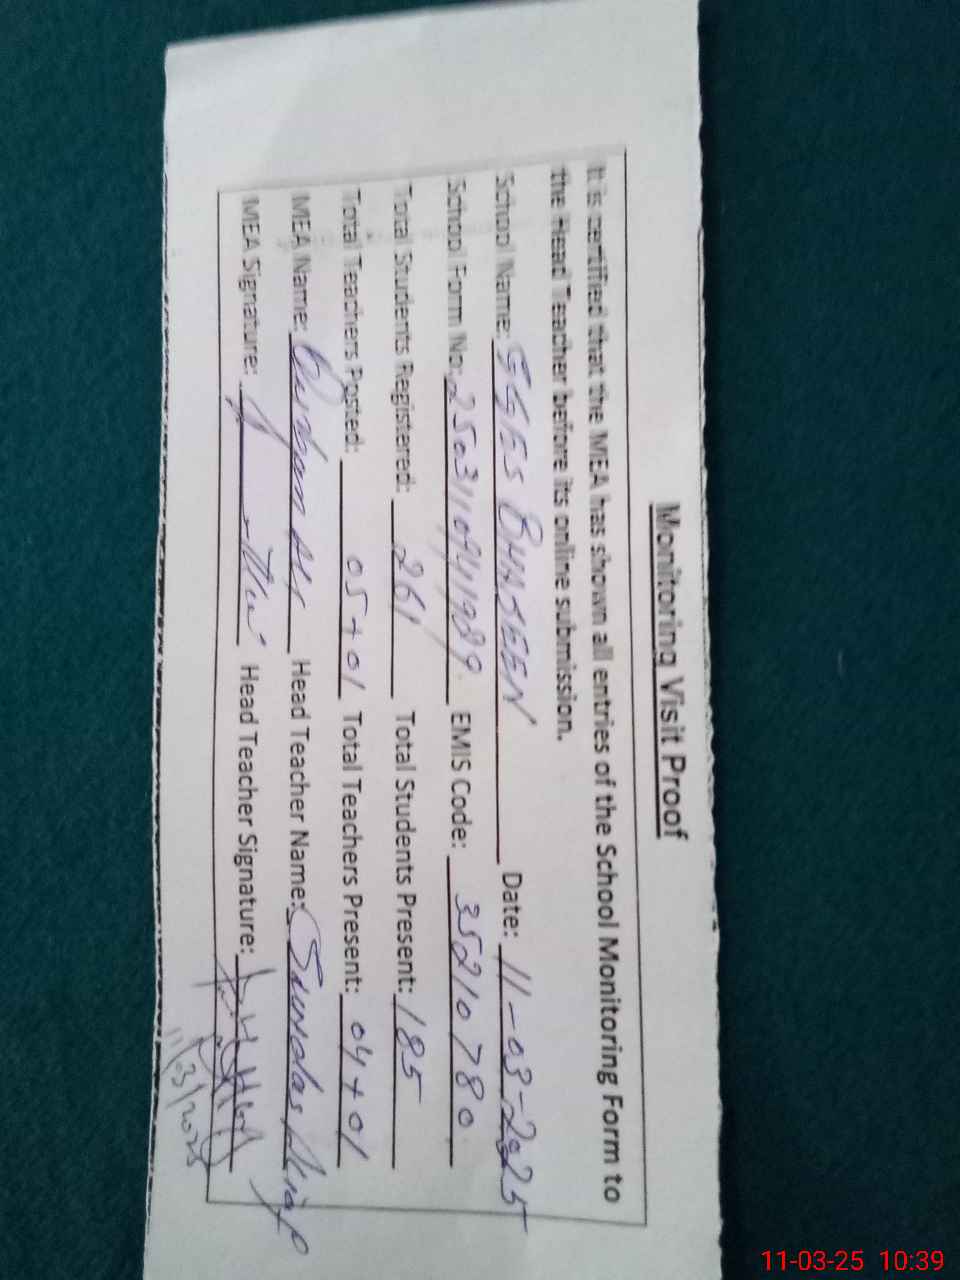 Monitoring Visit Proof
It is certified that the MEA has shown all entries of the School Monitoring Form to
the Head Teacher before its online submission.
School Name: GGES BHASEEN Date: 11-03-2025
School Form No: 25031109411989 EMIS Code: 35210780
Total Students Registered: 261 Total Students Present: 185
Total Teachers Posted: 05+01 Total Teachers Present: 04+01
MEA Name: Head Teacher Name: Sundas
MEA Signature: Head Teacher Signature:
11/3/2025
11-03-25 10:39